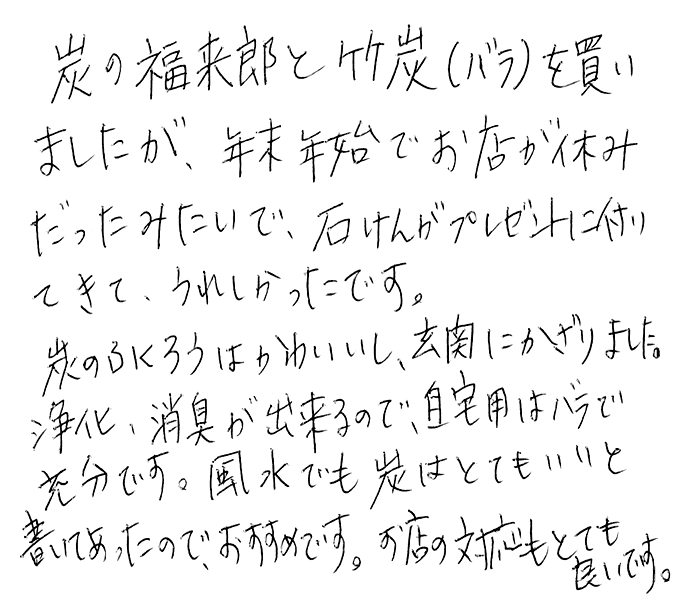 炭の福来郎と竹炭(バラ)を買い
ましたが、年末年始でお店が休み
だったみたいで、石けんがプレゼントに付い
てきて、うれしかったです。
炭のふくろうはかわいいし、玄関にかざりました。
浄化、消臭が出来るので、自宅用はバラで
充分です。風水でも炭はとてもいいと
書いてあったので、おすすめです。お店の対応もとても
良いです。